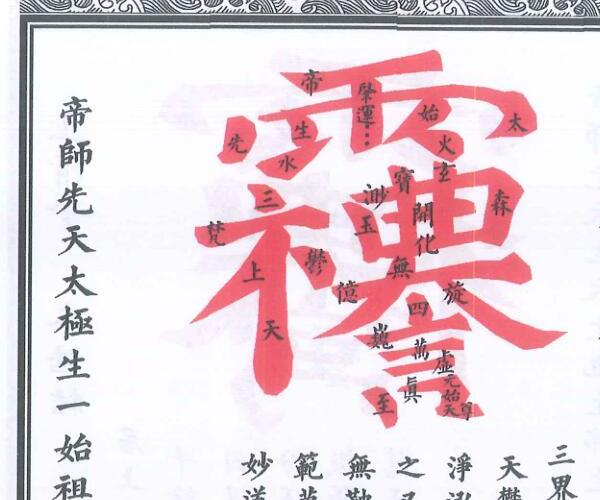 帝
肇運
始
太
先
生
火
玄
水
三
渺
寶
玉
開化
森
梵
上
鬱
無
億
四
旋
天
巍
萬
虛
眞
元始天尊
至
三界
天
淨
之
無
範
妙
帝師先天太極生一始祖